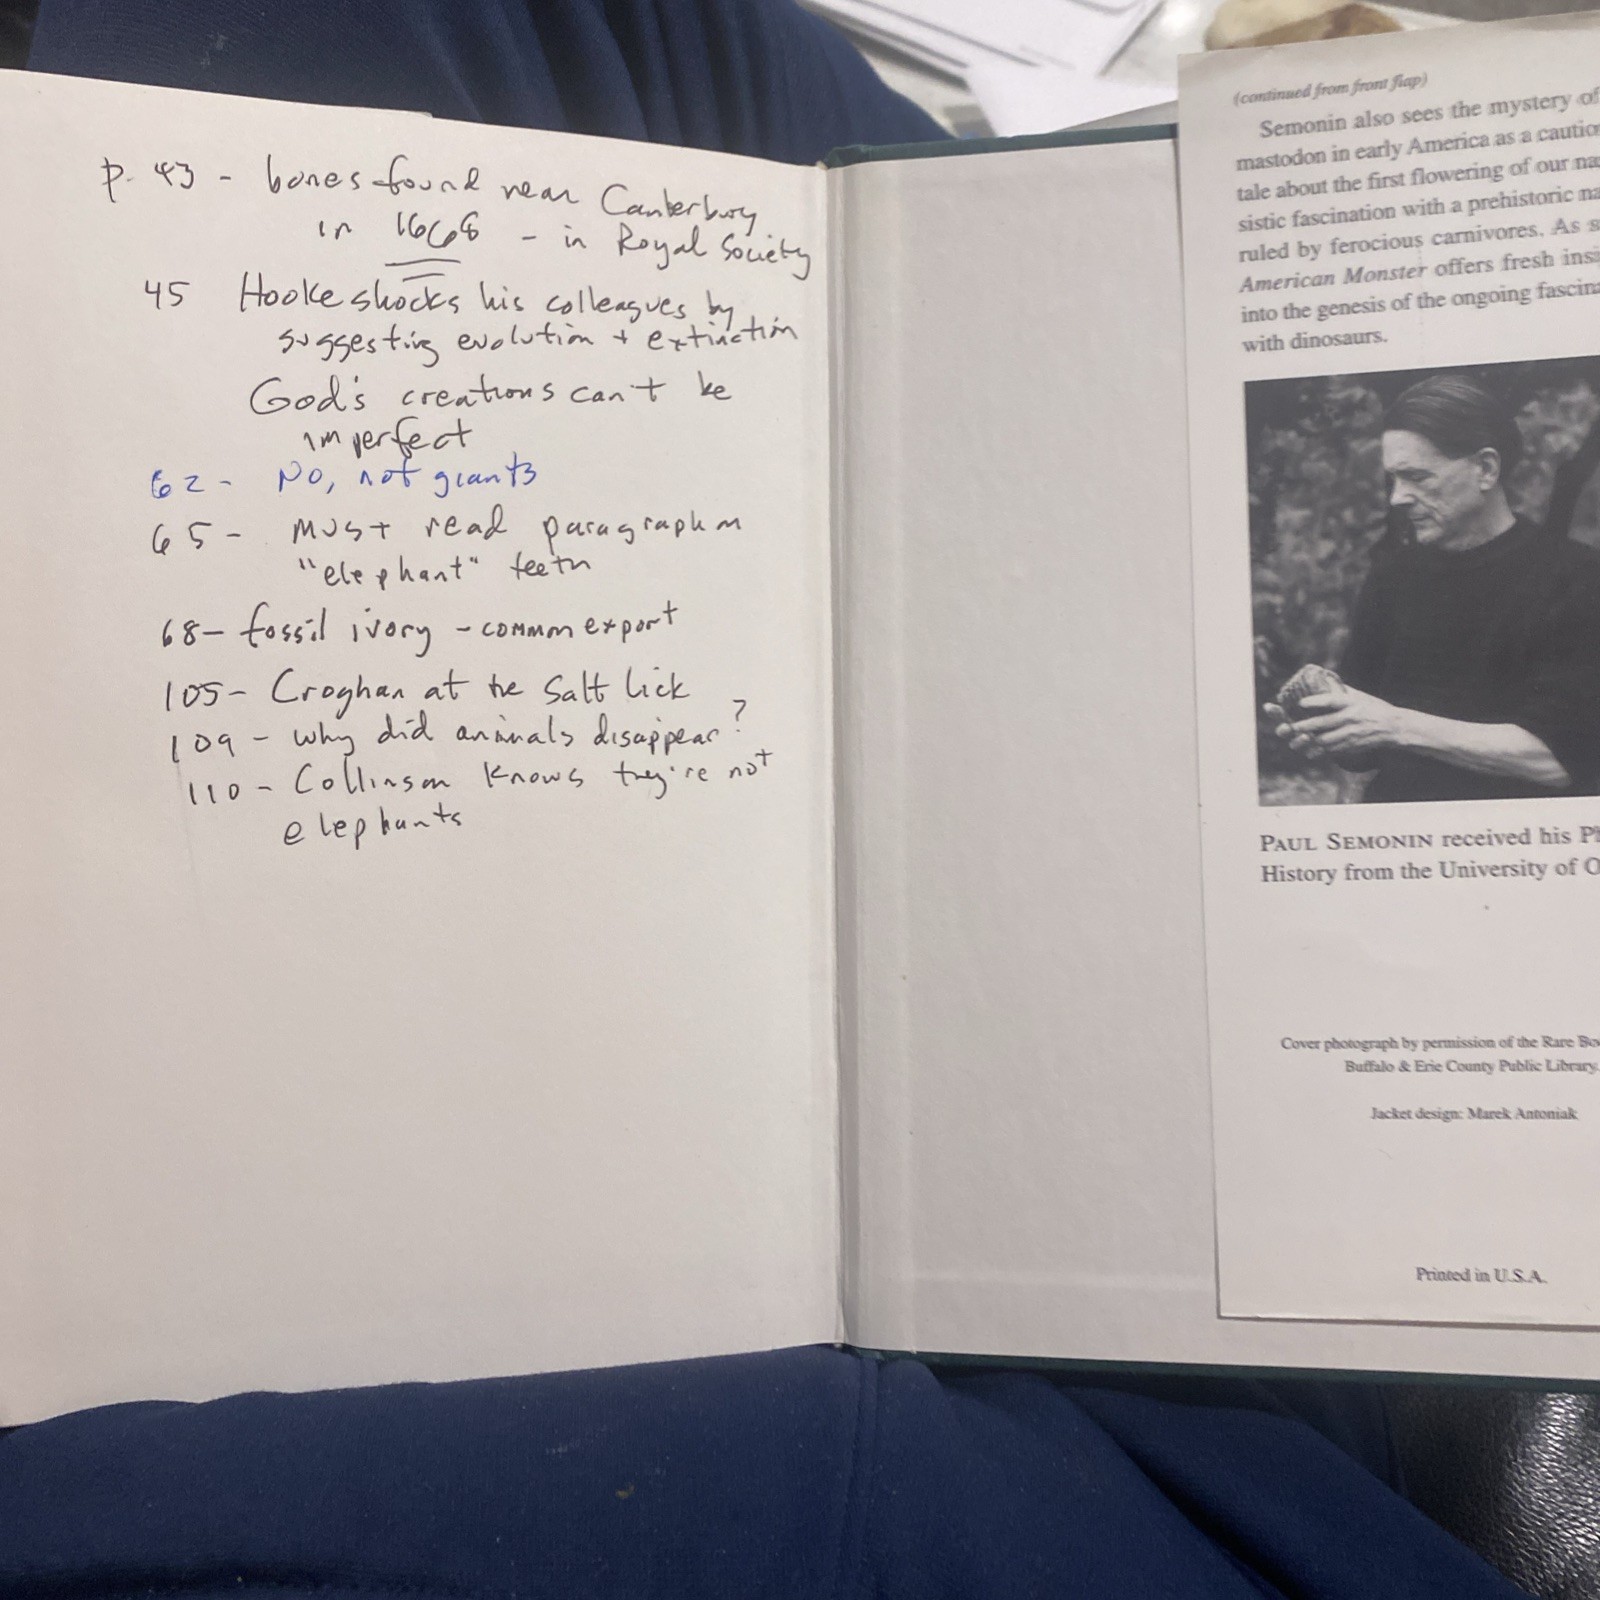 p. 43 - bones found near Canterbury
in 1668 - in Royal Society
45 Hooke shocks his colleagues by
suggesting evolution + extinction
God's creations can't be
imperfect
62 - No, not giants
65 - Must read paragraph on
"elephant" teeth
68 - fossil ivory - common export
105 - Croghan at the Salt Lick
109 - why did animals disappear?
110 - Collinson knows they're not
elephants
(continued from front flap)
Semonin also sees the mystery of
mastodon in early America as a cautio
tale about the first flowering of our na
sistic fascination with a prehistoric na
ruled by ferocious carnivores. As s
American Monster offers fresh insi
into the genesis of the ongoing fascina
with dinosaurs.
PAUL SEMONIN received his Ph
History from the University of O
Cover photograph by permission of the Rare Bo
Buffalo & Erie County Public Library.
Jacket design: Marek Antoniak
Printed in U.S.A.